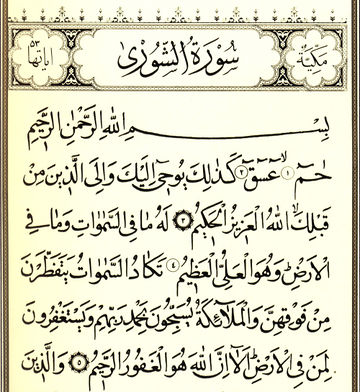 مكية
سورة الشورى
آياتها ٥٣
بِسْمِ اللهِ الرَّحْمٰنِ الرَّحِيمِ
حٰمۤ ﴿١﴾ عۤسۤقۤ ﴿٢﴾ كَذٰلِكَ يُوحِي إِلَيْكَ وَإِلَى الَّذِينَ مِنْ
قَبْلِكَ اللهُ الْعَزِيزُ الْحَكِيمُ ﴿٣﴾ لَهُ مَا فِي السَّمٰوَاتِ وَمَا فِي
الْأَرْضِ وَهُوَ الْعَلِيُّ الْعَظِيمُ ﴿٤﴾ تَكَادُ السَّمٰوَاتُ يَتَفَطَّرْنَ
مِنْ فَوْقِهِنَّ وَالْمَلَائِكَةُ يُسَبِّحُونَ بِحَمْدِ رَبِّهِمْ وَيَسْتَغْفِرُونَ
لِمَنْ فِي الْأَرْضِ أَلَا إِنَّ اللهَ هُوَ الْغَفُورُ الرَّحِيمُ ﴿٥﴾ وَالَّذِينَ